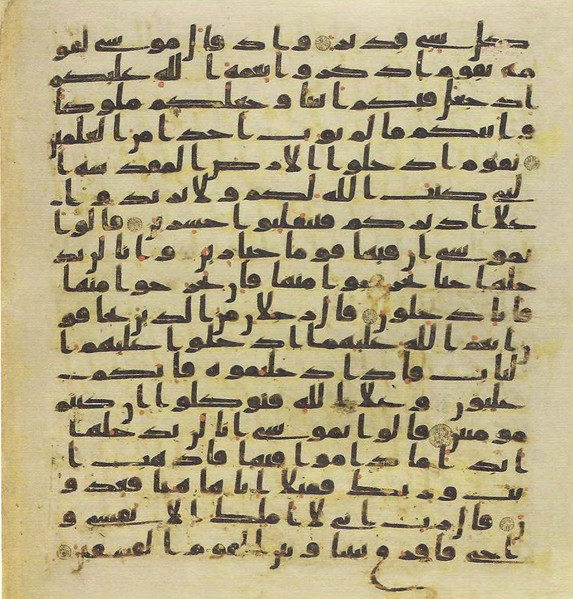 كل شى قدير واذ قال موسى لقو
مه يقوم اذكروا نعمة الله عليكم
اذ جعل فيكم انبيا وجعلكم ملوكا
واتيكم ما لم يوت احدا من العلمين
يقوم ادخلوا الارض المقدسة ا
لتى كتب الله لكم ولا ترتدوا
علا ادبركم فتنقلبوا خسرين قالوا
يموسى ان فيها قوما جبارين وانا لن ند
خلها حتا يخرجوا منها فان يخرجوا منها
فانا دخلون قال رجلان من الذين يخافو
ن انعم الله عليهما ادخلوا عليهم ا
لباب فاذا دخلتموه فانكم
غلبون وعلا الله فتوكلوا ان كنتم
مومنين قالوا يموسى انا لن ندخلها
ابدا ما داموا فيها فاذهب ا
نت وربك فقتلا انا ههنا قعدو
ن قال رب انى لا املك الا نفسى و
اخى فافرق بيننا وبين القوم الفسقين